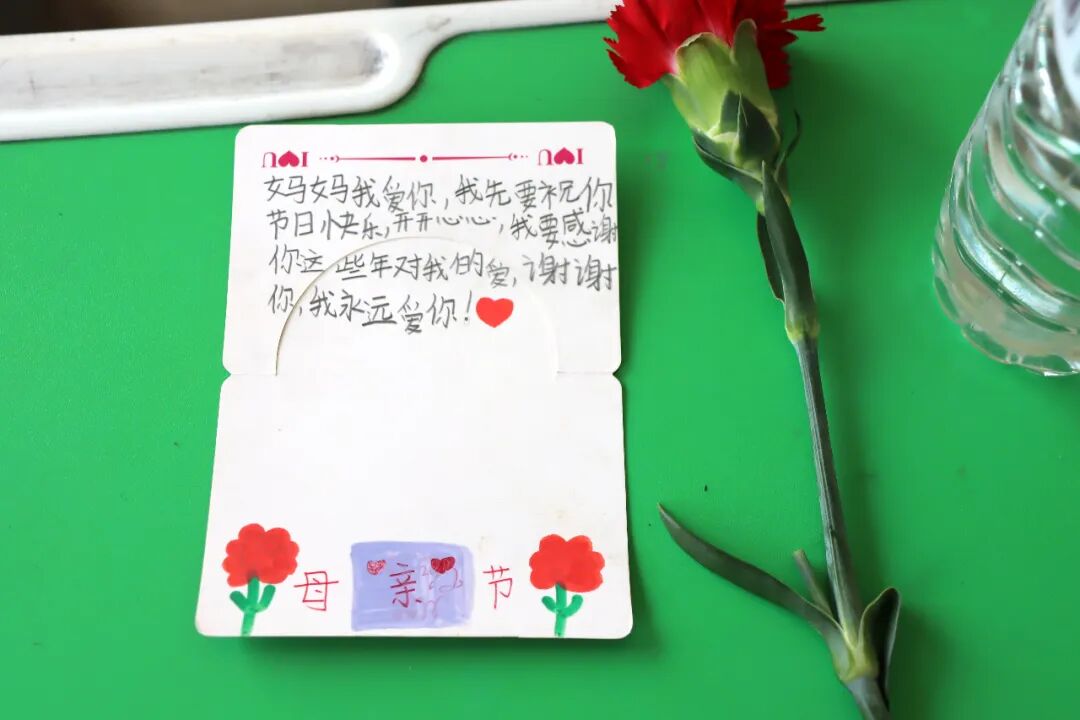 妈妈我爱你,我先要祝你
节日快乐,开开心心,我要感谢
你这些年对我的爱,谢谢
你,我永远爱你!
母亲节